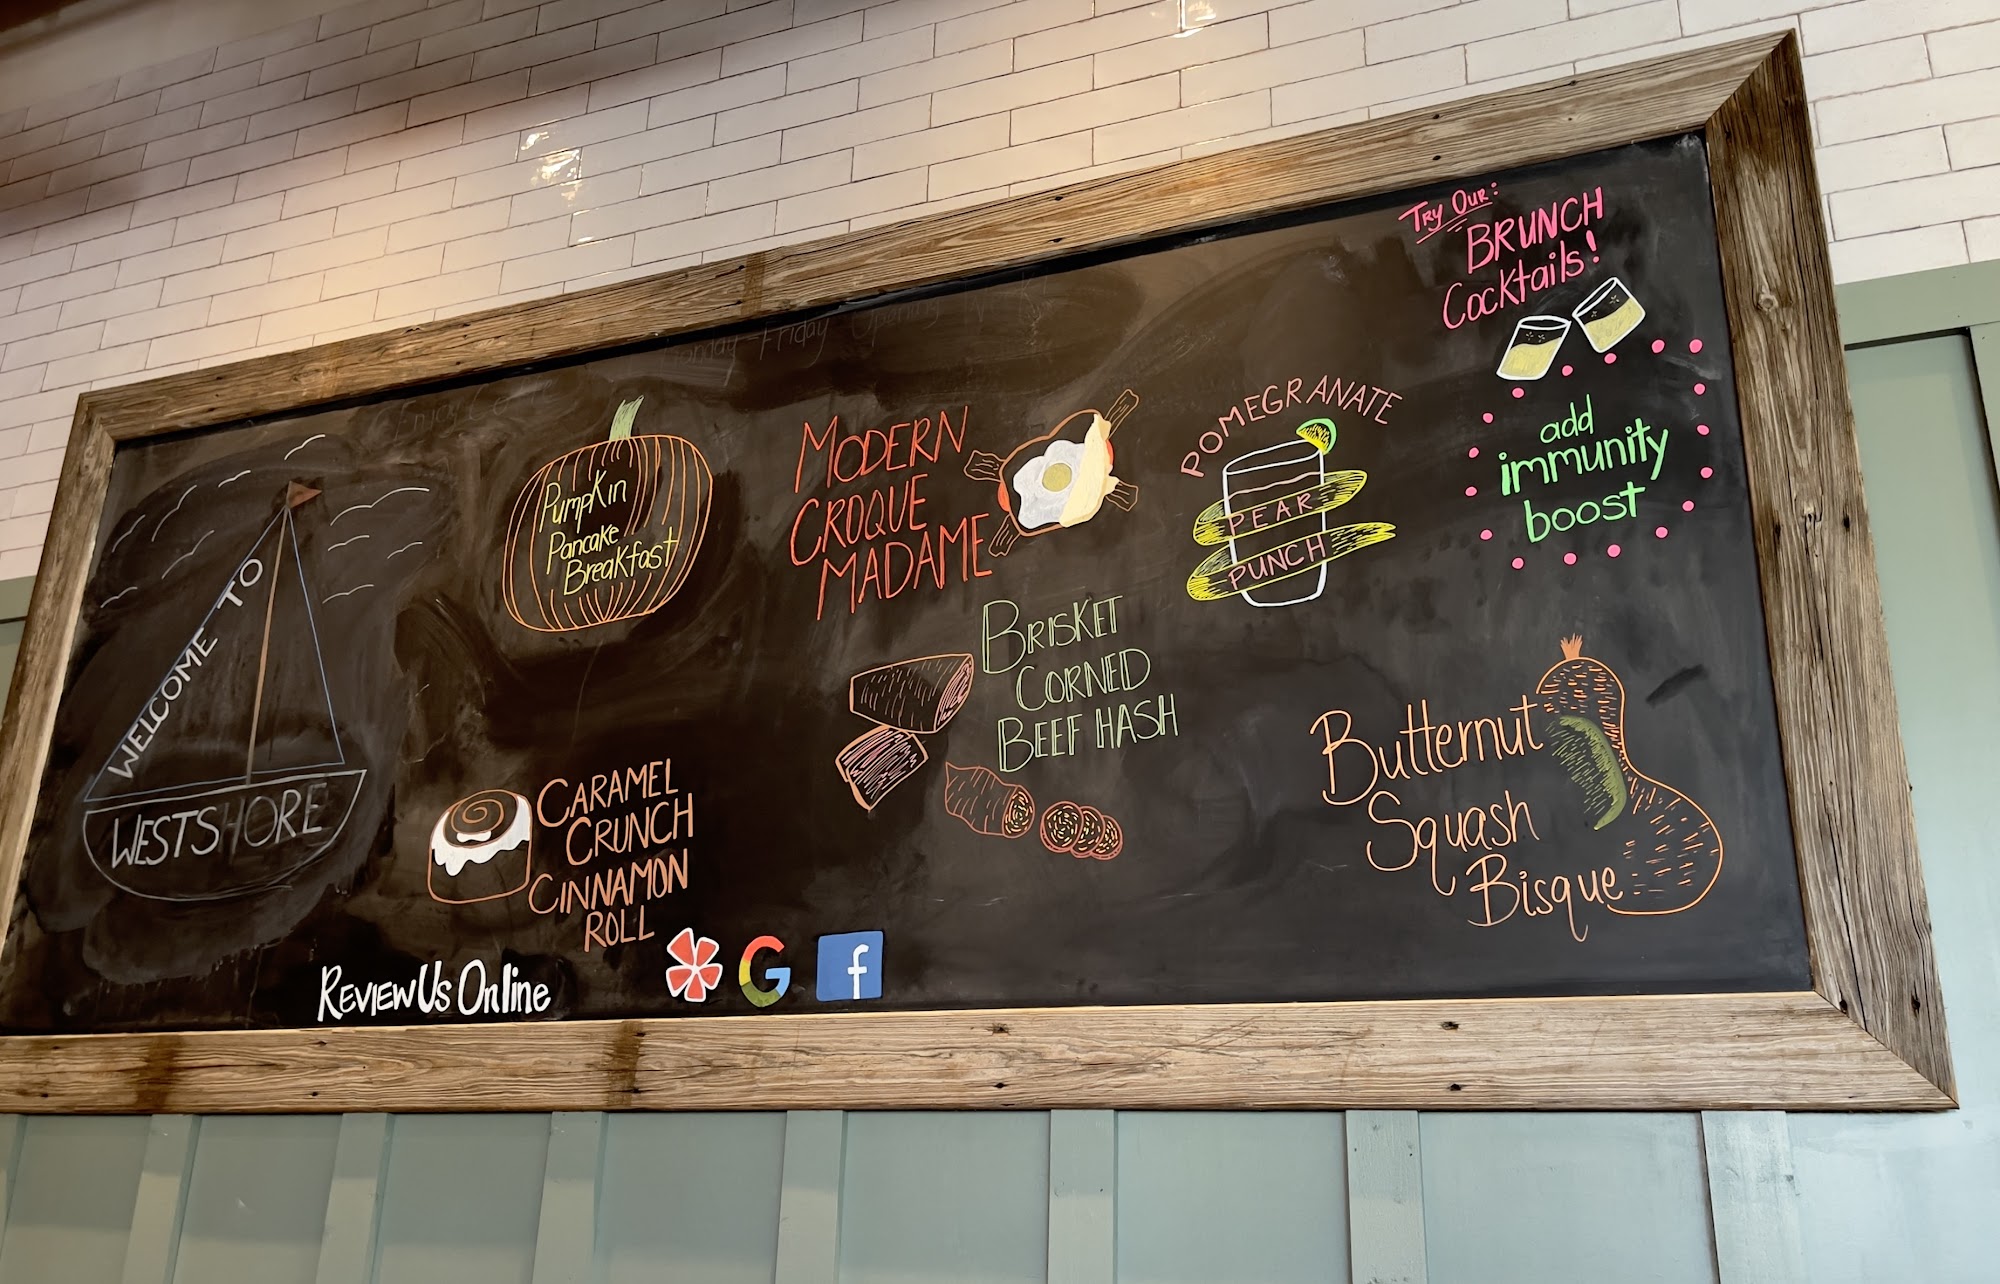 WELCOME TO
WESTSHORE
Pumpkin
Pancake
Breakfast
CARAMEL
CRUNCH
CINNAMON
ROLL
REVIEW US Online
G
f
Monday-Friday Opening
Enjoy
MODERN
CROQUE
MADAME
BRISKET
CORNED
BEEF HASH
POMEGRANATE
PEAR
PUNCH
TRY OUR:
BRUNCH
Cocktails!
add
immunity
boost
Butternut
Squash
Bisque